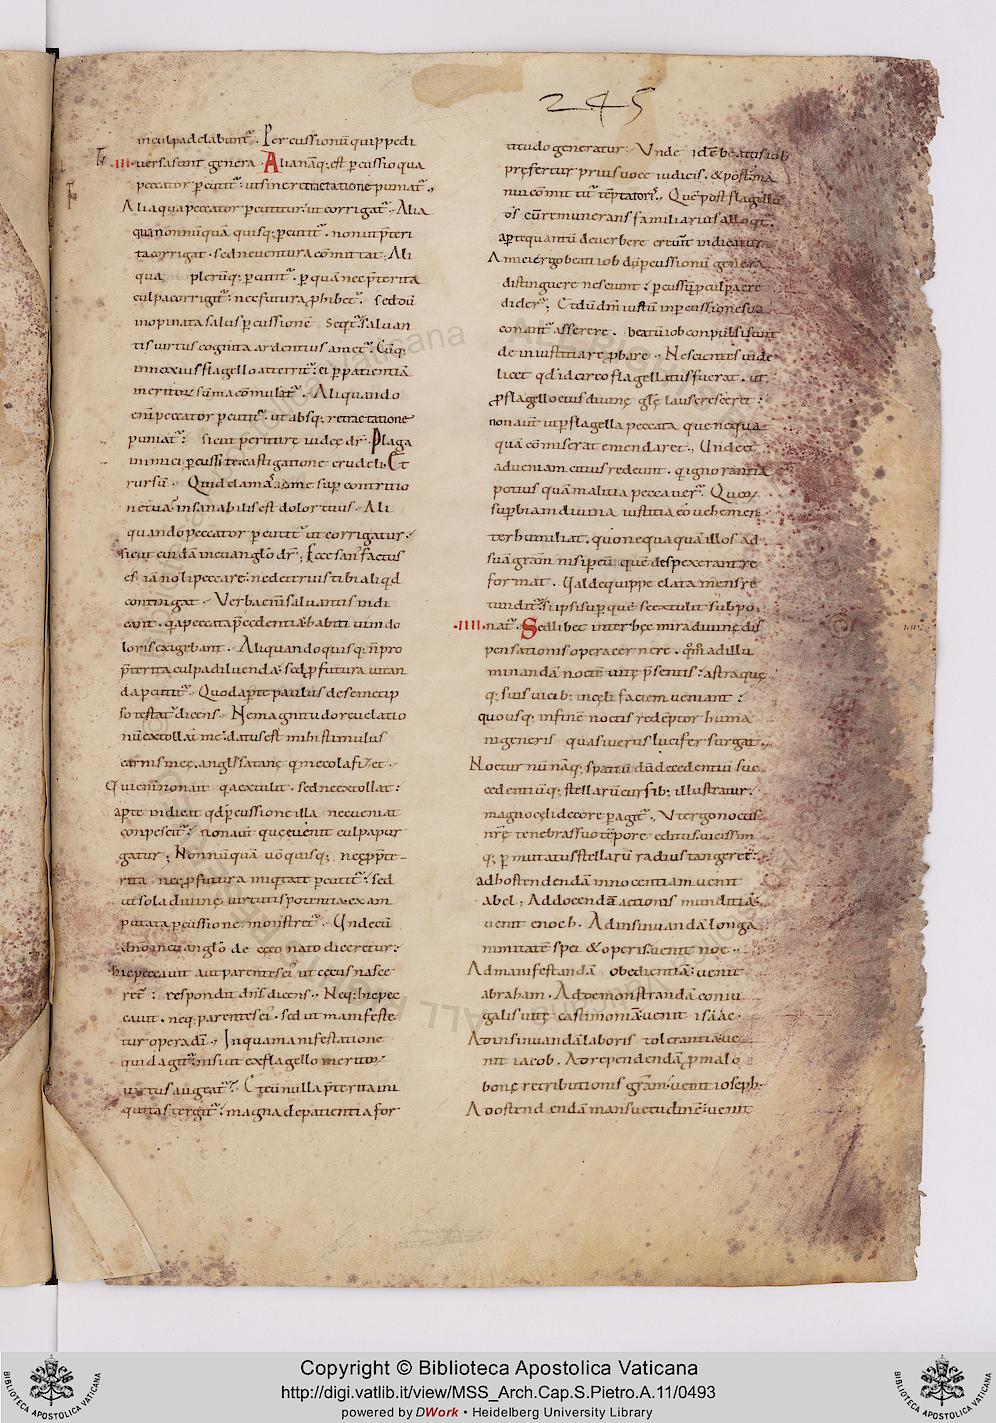 245
in culpa delabunt᷑. Percussionū quippe di
·III· versa sunt genera. Alia nāq; est pcussio qua
peccator pcutit᷑. ut sine retractatione puniat᷑.
Alia qua peccator pcutitur. ut corrigat᷑. Alia
qua nonnūquā quisq; pcutit᷑. non ut p̄teri
ta corrigat. sed ne ventura cōmittat. Ali
qua plerūq; pcutit᷑. p quā nec p̄terita
culpa corrigit᷑. nec futura phibet᷑. sed dū
inopinata salus pcussionē seqt᷑. salvan
tis virtus cognita ardentius amet᷑. Cūq;
innoxius flagello atterrit᷑. ei p patientiā
meritoꝝ sūma cōmulat᷑. Aliquando
eni peccator pcutit᷑. ut absq; retractatione
puniat᷑. sicut periturę iudeę dr̄. Plaga
inimici pcussi te. castigatione crudeli. Et
rursū. Quid clamas ad me sup contritio
ne tua. insanabilis est dolor tuus. Ali
quando peccator pcutit᷑ ut corrigatur.
sicut cuidā in euanglo dr̄. Ecce sanus factus
es. iā noli peccare. ne deterius tibi aliqd
contingat. Verba eni salvantis indi
cant. qa peccata p̄cedentia habiti vim do
loris exigebant. Aliquando quisq; n̄ pro
p̄terita culpa diluenda. sed p futura vitan
da pcutit᷑. Quod aperte paulus de semetip
so testat᷑ dicens. Ne magnitudo revelatio
nū extollat me. datus est mihi stimulus
carnis meę. angls satanę q me colafizet.
Qui eni non ait qa extulit. sed ne extollat.
aperte indicat qd pcussione illa ne eveniat
conpescit᷑. non aut quę evenit culpa pur
gatur. Nonnūquā vō quisq; neq; p p̄te
rita. neq; p futura iniqtate pcutit᷑. sed
ut sola divinę virtutis potentia ex am
putata pcussione monstret᷑. Unde cū
dno in euanglo de ceco nato diceretur.
hic peccavit aut parentes ei᷑ ut cecus nasce
ret᷑. respondit dns dicens. Neq; hic pec
cavit. neq; parentes ei᷑. sed ut manifeste
tur opera dī. In qua manifestatione
quid agit᷑. nisi ut ex flagello meritoꝝ
virtus augeat᷑. Et cū nulla p̄terita ini
quitas tergit᷑. magna de patientia for
titudo generatur. Unde idē beatus iob
prefertur prius voce iudicis. & post ma
nui cōmittitur tēptatoris. Quē post flagellū
ds cū remunerans familiarius alloqt᷑.
aperte quantū de verbere creverit indicatur.
Amici ergo beati iob dū pcussionū genera
distinguere nesciunt. pcussū p culpa cre
dider̄. Et dū dm iustū in pcussione sua
conant᷑ asserere. beatū iob conpulsi sunt
de iniustitia reprobare. Nescientes vide
licet qd idcirco flagellatus fuerat. ut
p flagello eius divinę glę laus cresceret.
non aut ut p flagella peccata que nequa
quā cōmiserat emendaret. Unde et
ad veniam citius redeunt. q ignorantia
potius quā malitia peccaver̄. Quoꝝ
supbiam divina iustitia eo vehemen
ter humiliat. quo nequaquā illos ad
suā gram nisi p eū quē despexerant re
format. Valde quippe elata mens re
tundit᷑. si ipsi sup quē se extulit subpo
·IIII· nat᷑. Sed libet inter hęc mira divinę dis
pensationis opera cernere. qm ad illu
minandā noctē vitę p̄sentis. astra quę
q; suis vicib; in celi faciem veniant.
quousq; in fine noctis redēptor huma
ni generis quasi verus lucifer surgat.
Nocturnū nāq; spatiū dū decedentiū suc
cedentiūq; stellarū cursib; illustratur.
magno celi decore pagit᷑. Ut ergo noctis
nr̄ę tenebras suo tēpore editus. vicissim
q; pmutatus stellarū radius tangeret.
ad hostendendā innocentiam venit
abel. Ad docendā actionis munditiā.
venit enoch. Ad insinuandā longa
nimitatē spei & operis. venit noe.
Ad manifestandā obedientiā. venit
abraham. Ad demonstrandā coniu
galis vitę castimoniā. venit isāac.
Ad insinuandā laboris tolerantiā. ve
nit iacob. Ad rependendā p malo
bonę retributionis gram. venit ioseph.
Ad ostendendā mansuetudinē. venit
Copyright © Biblioteca Apostolica Vaticana
http://digi.vatlib.it/view/MSS_Arch.Cap.S.Pietro.A.11/0493
powered by DWork • Heidelberg University Library
BIBLIOTECA APOSTOLICA VATICANA
BIBLIOTECA APOSTOLICA VATICANA